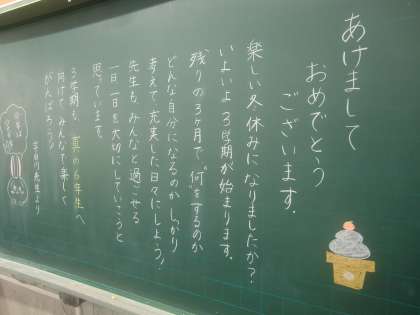 あけまして
おめでとう
ございます.
楽しい冬休みになりましたか?
いよいよ3学期が始まります.
残りの3ヶ月で"何"をするのか
どんな自分になるのか しっかり
考えて 充実した日々にしよう!
先生も、みんなと過ごせる
一日一日を大切にしていこうと
思っています.
3学期も、真の6年生へ
向けて、みんなで楽しく
がんばろう!